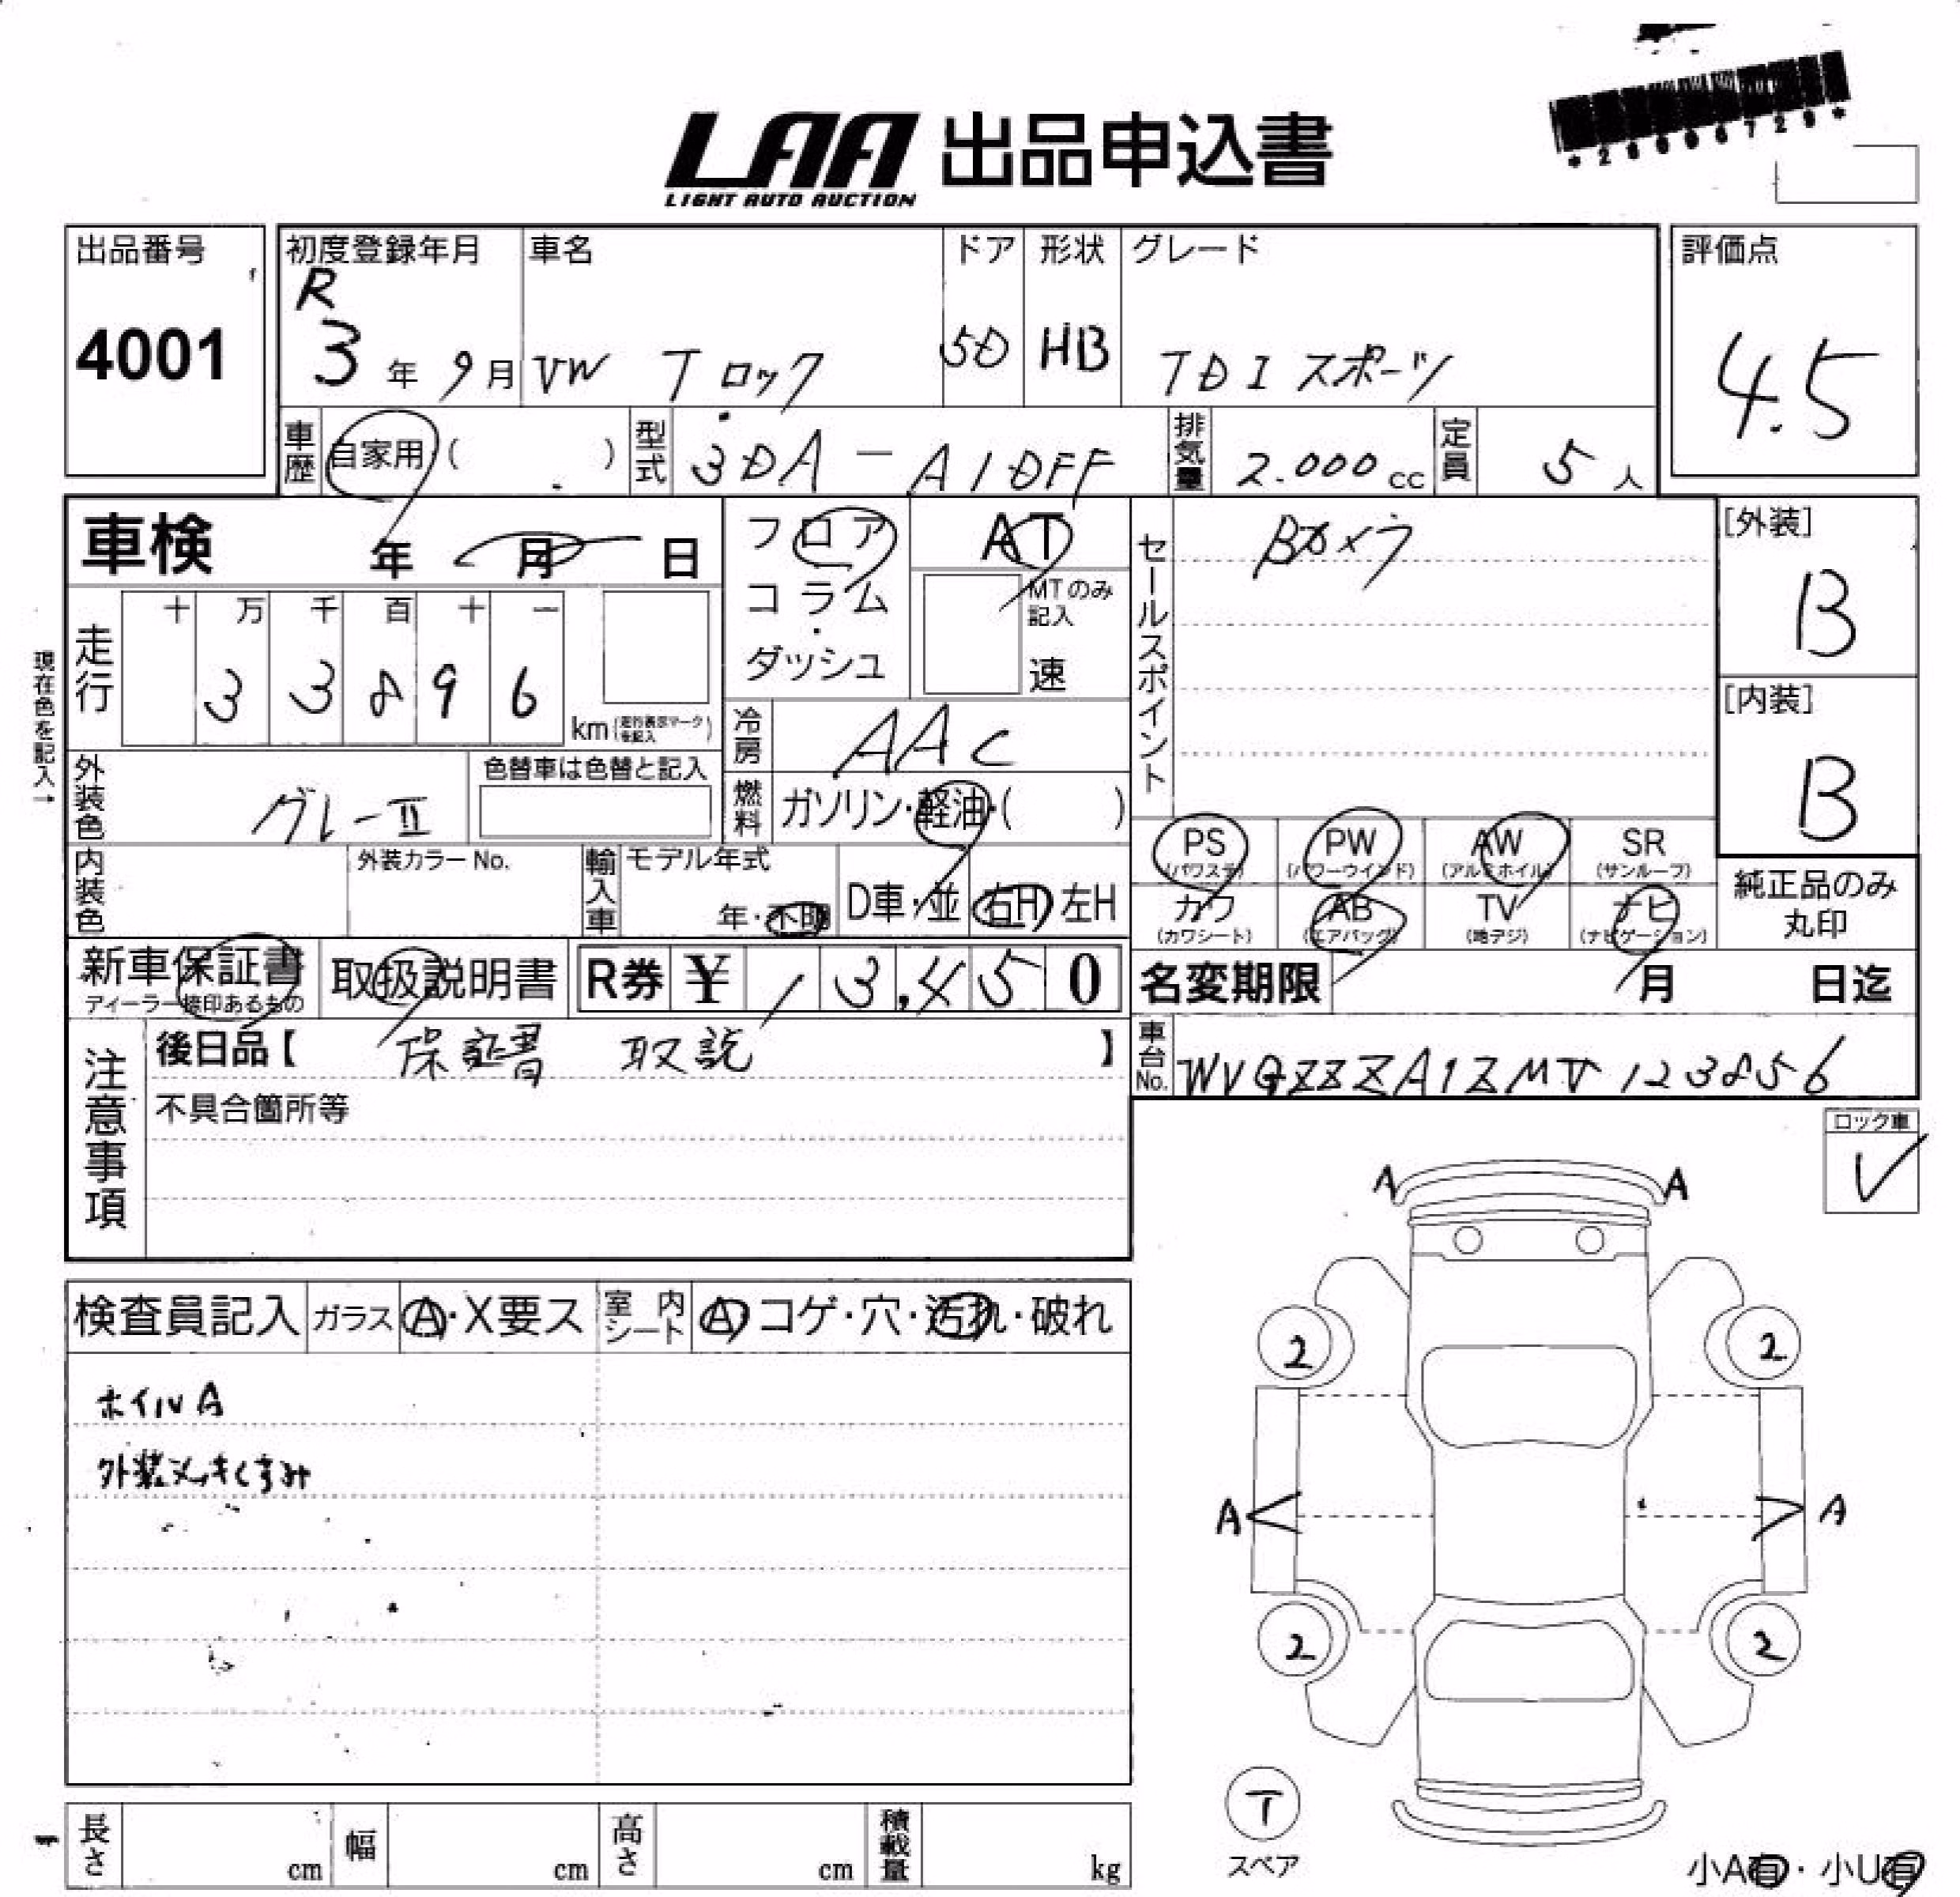 LAA 出品申込書
LIGHT AUTO AUCTION
出品番号
4001
初度登録年月
R
3 年 9 月
車名
VW Tロック
ドア
5D
形状
HB
グレード
TDI スポーツ
評価点
4.5
車歴
自家用 ( )
型式
3DA-A1DFF
排気量
2.000 cc
定員
5 人
車検 年 月 日
フロア
コラム
・
ダッシュ
AT
MTのみ
記入
速
セールスポイント
Bカメラ
[外装]
B
[内装]
B
現在色を記入→
走行
十 万 千 百 十 一
3 3 8 9 6
km (走行表示マークを記入)
冷房
AAC
外装色
グレーII
色替車は色替と記入
燃料
ガソリン・軽油・( )
PS
(パワステ)
PW
(パワーウインド)
AW
(アルミホイル)
SR
(サンルーフ)
内装色
外装カラーNo.
輸入車
モデル年式
年・不明
D車・並
右H 左H
カワ
(カワシート)
AB
(エアバッグ)
TV
(地デジ)
ナビ
(ナビゲーション)
純正品のみ
丸印
新車保証書
ディーラー捺印あるもの
取扱説明書
R券 ¥ 13,450
名変期限 月 日迄
注意事項
後日品【 保証書 取説 】
不具合箇所等
車台No.
WVGZZZA1ZMV123856
ロック車
✓
検査員記入
ガラス
A・X要ス
室内シート
A・コゲ・穴・汚れ・破れ
ホイルA
外装メッキくすみ
A A
2 2
A A
2 2
T
スペア
小A有・小U有
長さ cm
幅 cm
高さ cm
積載量 kg